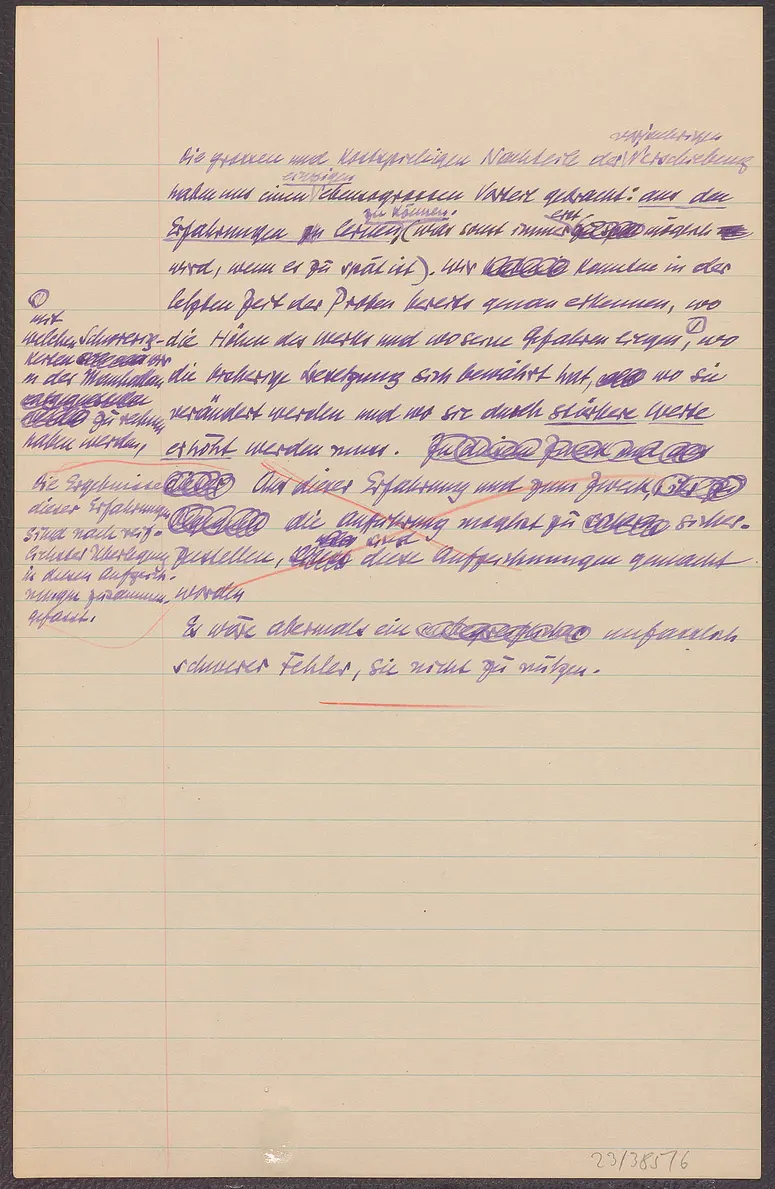 vorjaehrigen
Die grossen und kostspieligen Nachteile der Verschiebung
einzigen
haben uns einen ebensogrossen Vorteil gebracht: aus den
zu können. erst
Erfahrungen zu lernen (was sonst immer möglich
wird, wenn es zu spät ist). Wir konnten in der
letzten Zeit der Proben bereits genau erkennen, wo
die Höhen des Werks und wo seine Gefahren liegen, wo
die bisherige Besetzung sich bewährt hat, wo sie
verändert werden und wo sie durch stärkere Werte
erhöht werden muss. Zu diesem Zweck und aus
Aus dieser Erfahrung und zum Zweck
die Aufführung möglichst zu sicher-
sind
zustellen, diese Aufzeichnungen gemacht
worden
Es wäre abermals ein unfasslich
schwerer Fehler, sie nicht zu nützen.
mit
welchen Schwierig-
keiten wir
in der
zu rechnen
haben werden,
Die Ergebnisse
dieser Erfahrungen
sind nach reif-
lichster Überlegung
in diesen Aufzeich-
nungen zusammen-
gefasst.
23/38576